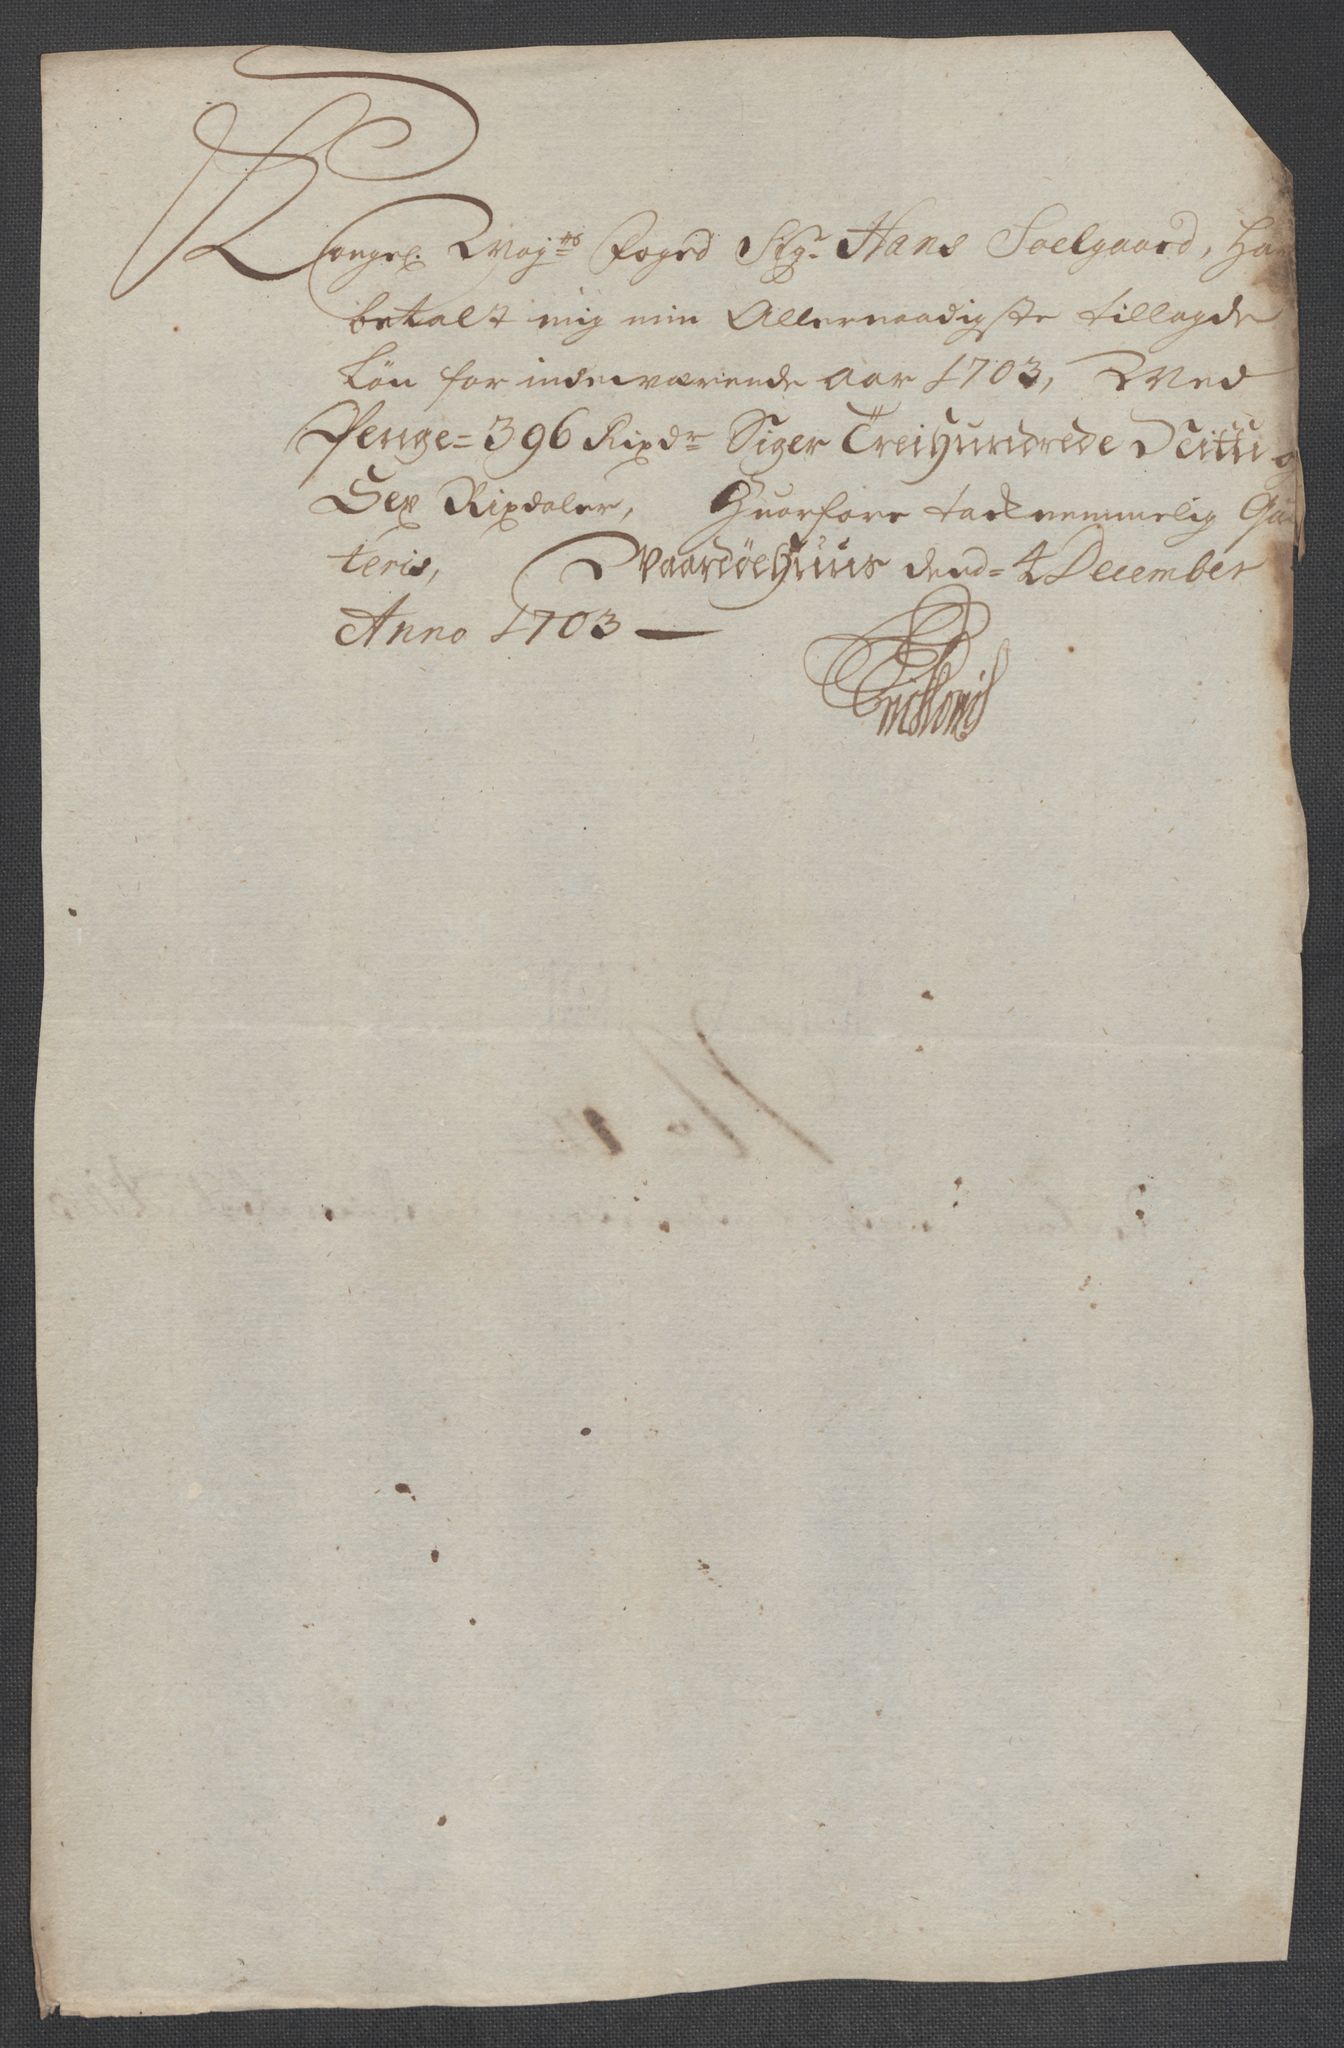 Kongel. Mayts Foged Sigr. Hans Soelgaard, Har
betalt mig min Allernaadigste tillagde
Løn for indeværende aar 1703, Med
Penge = 396 Rixdr Siger Treihundrede Nitti og
Sex Rixdaler, Huorfore tacknemmelig Qui
teris, Waardøehuus dend = 4 December
Anno 1703